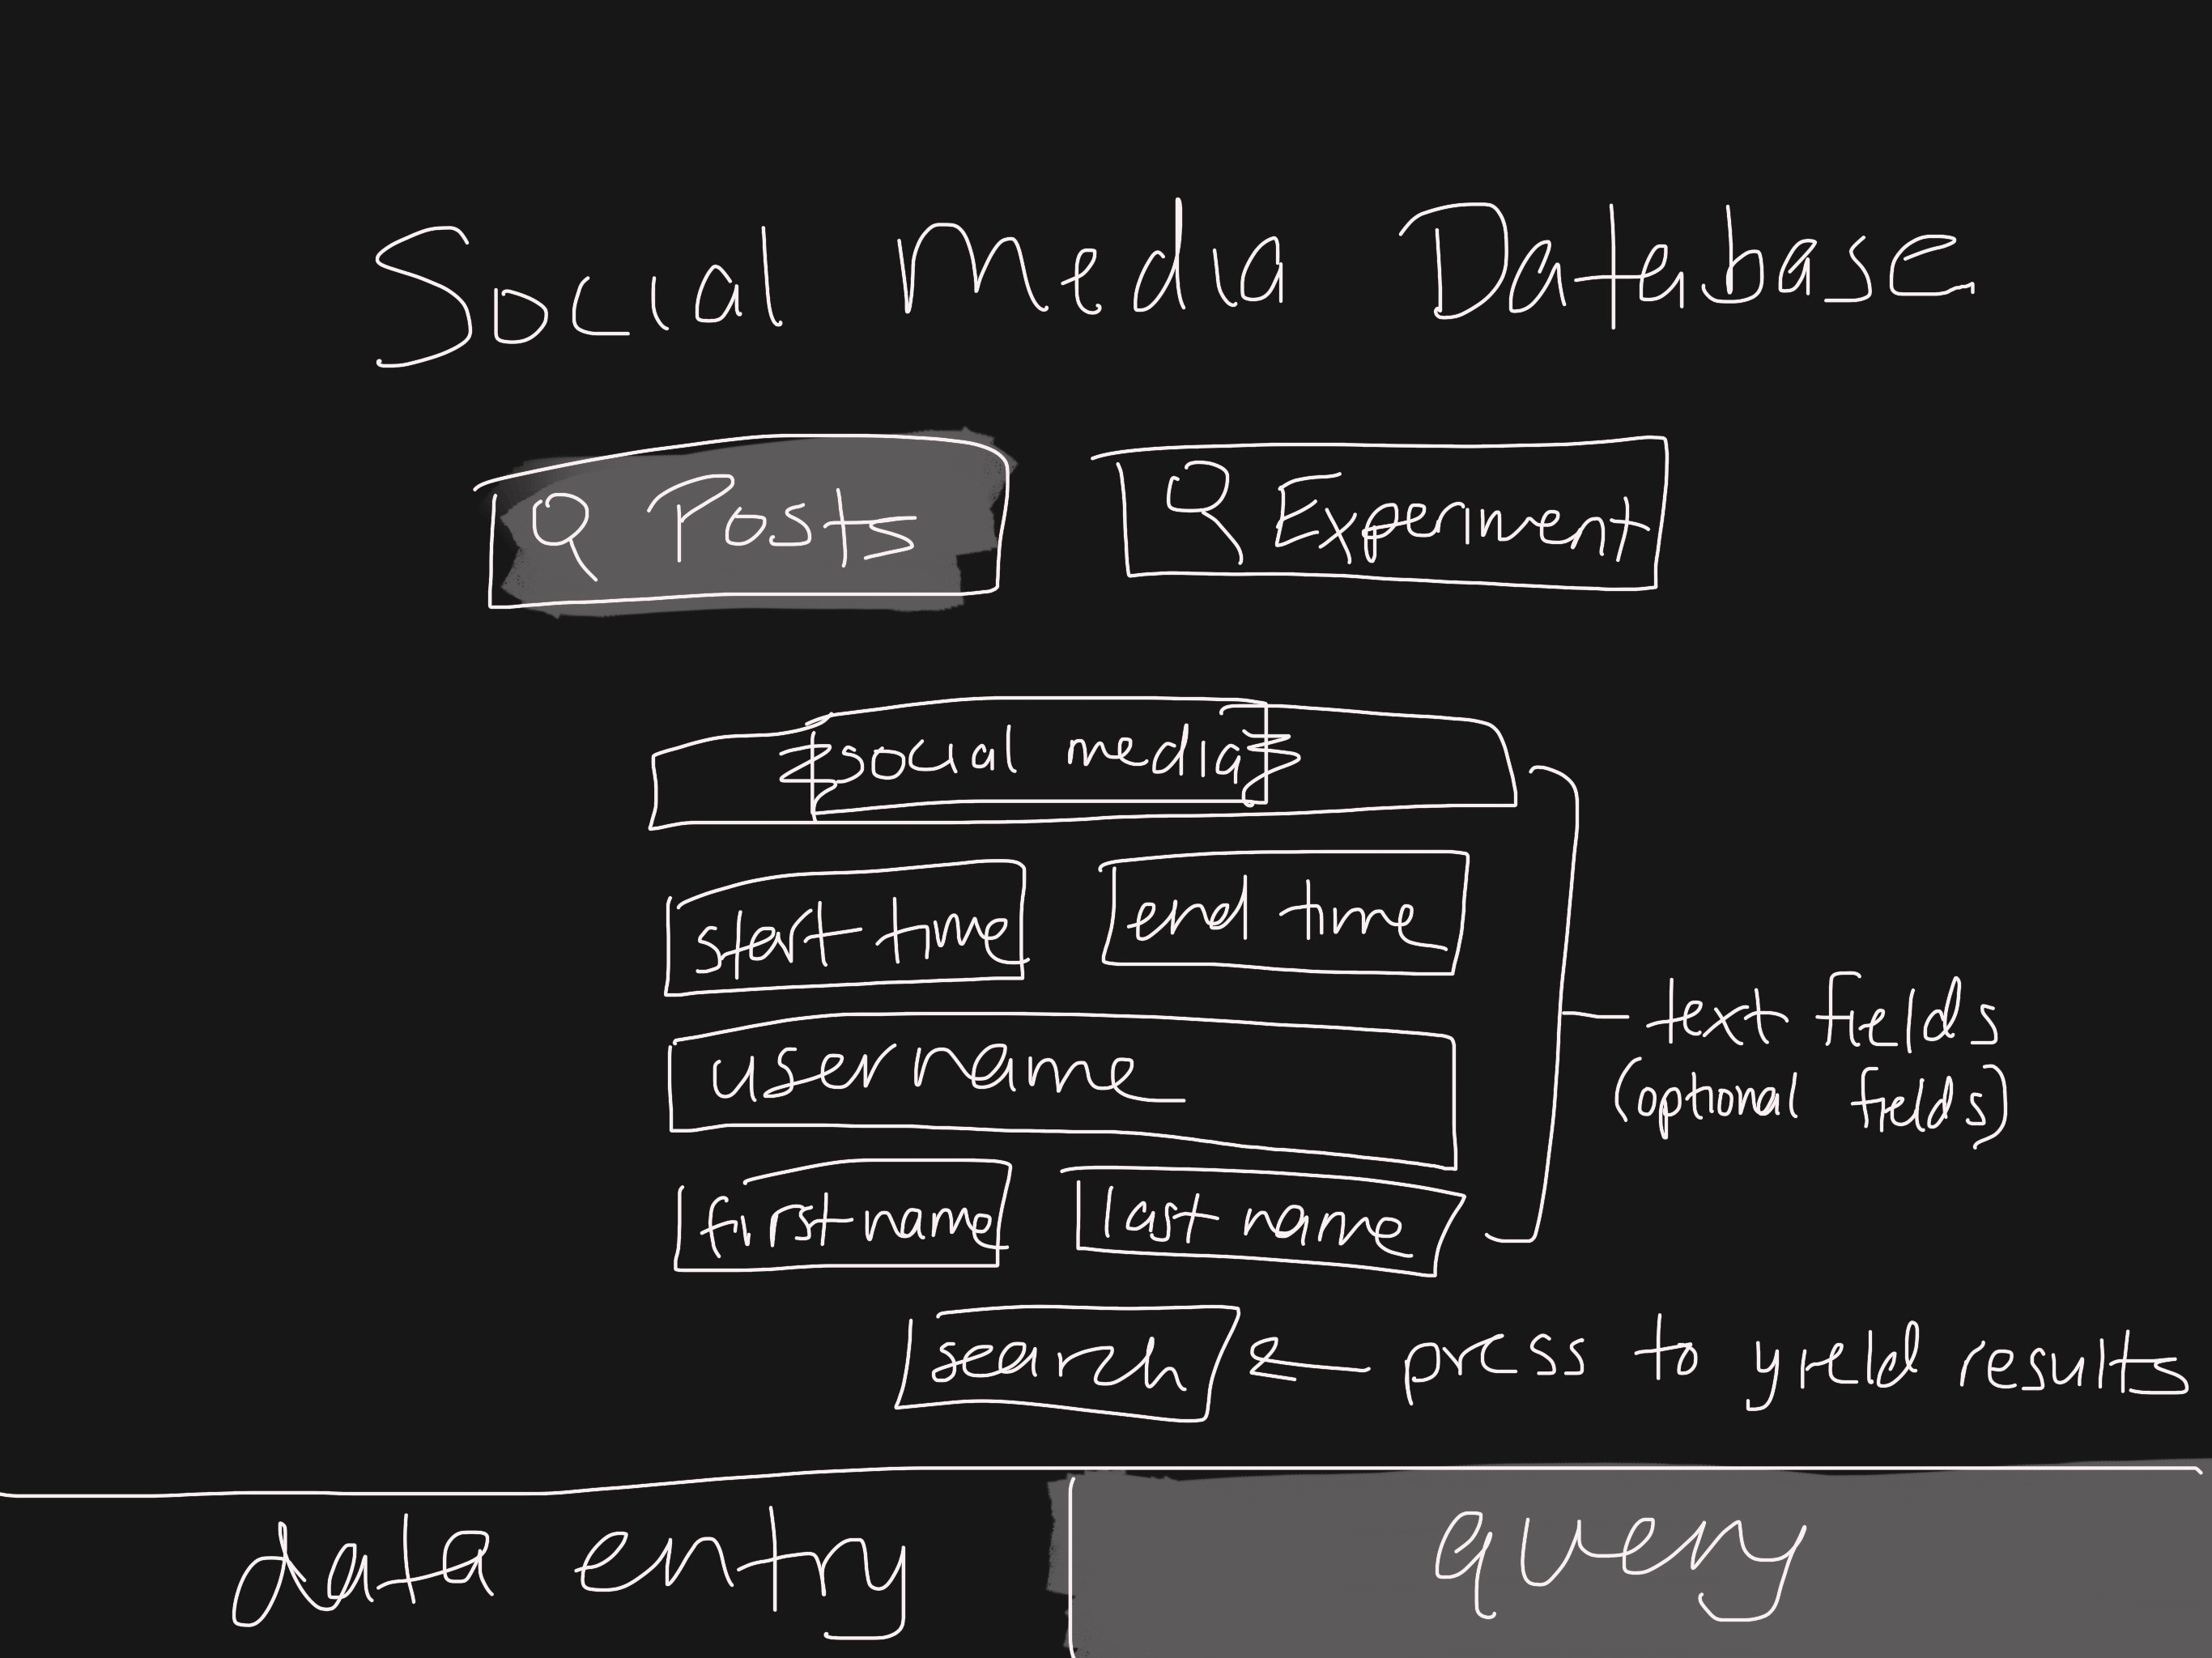 Social Media Database
Posts
Experiment
social media
start time
end time
username
first name
last name
text fields
(optional fields)
search ← press to yield results
data entry
query